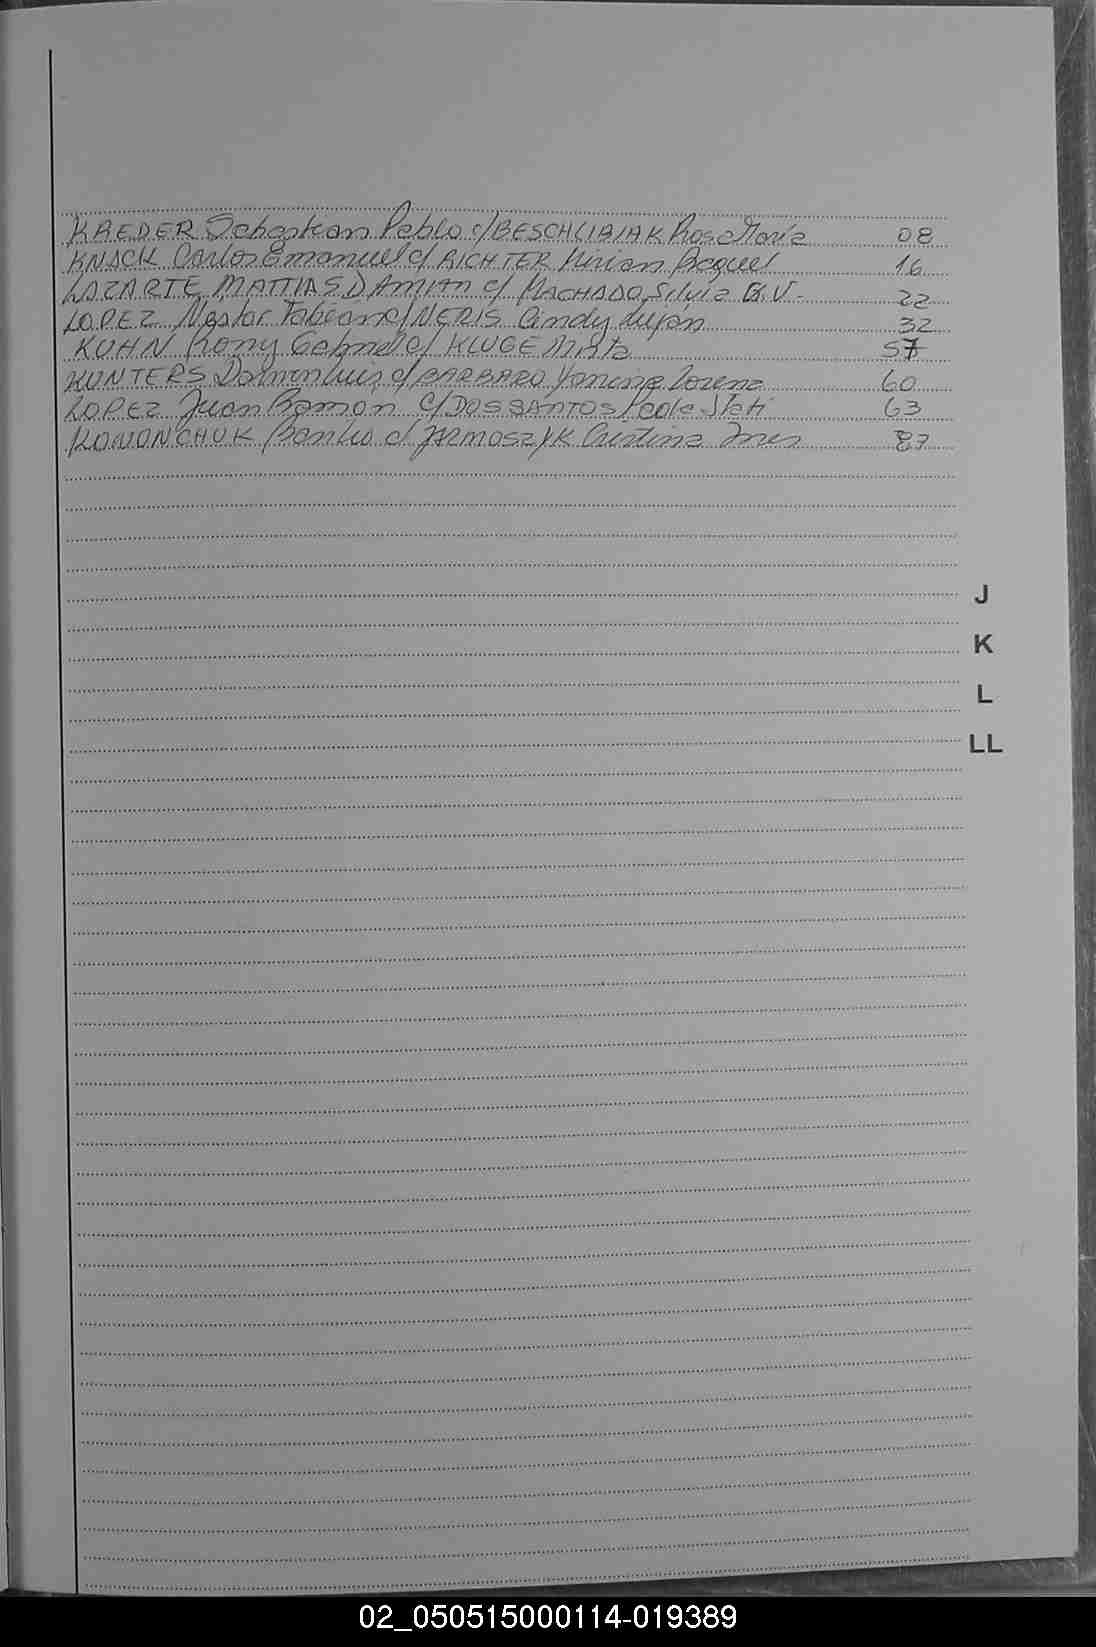 KREDER Sebastian Pablo c/BESCHLIBIAK Rosa Maria 08
KNACK Carlos Emanuel c/ RICHTER Mirian Raquel 16
LAZARTE MATTIAS DAMIAN c/ MACHADO Silvia G.V. 22
LOPEZ Nestor Fabian c/NERIS Cindy Lujan 32
KUHN Rony Gabriel c/ KLUGE Mirta 57
KUNTERS Luis c/BARBARO Yamina Lorena 60
LOPEZ Juan Ramon c/DOS SANTOS Paola 63
KONONCHUK c/ JARMOSZYK Cristina Ines 87
J
K
L
LL
02_050515000114-019389